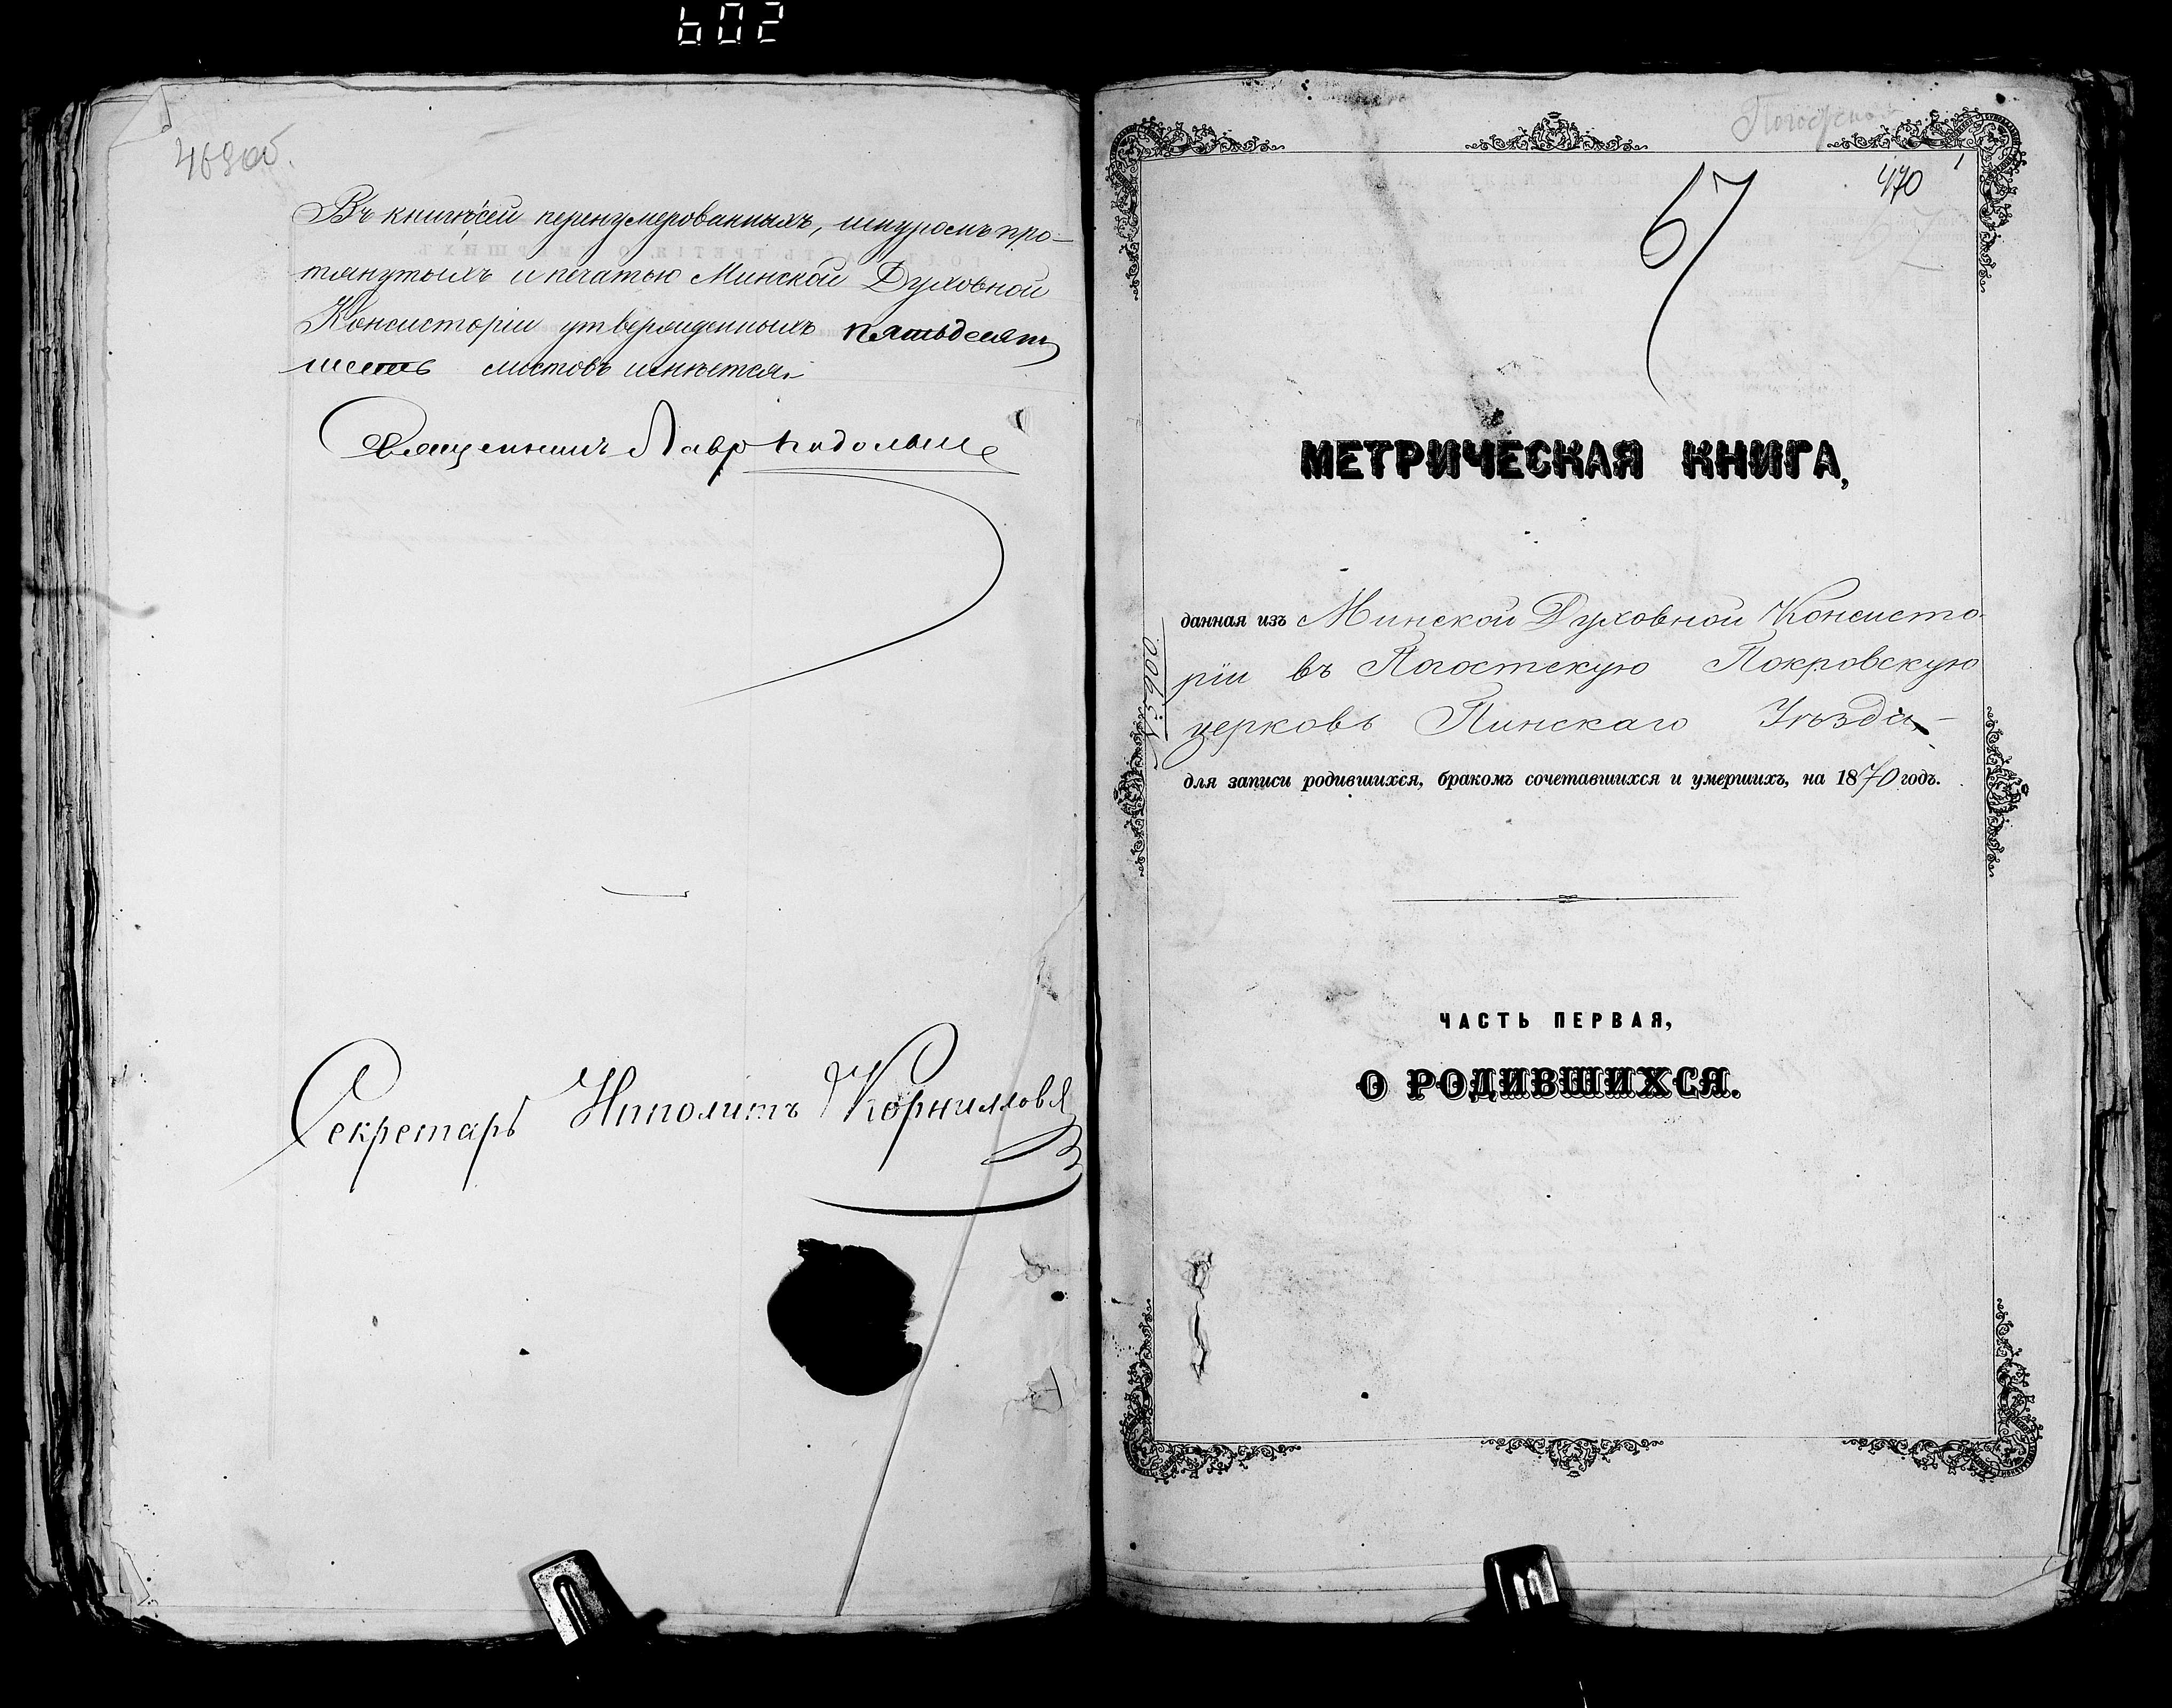 602
469об.
Въ книгѣ сей перенумерованныхъ, шнуромъ про-
тянутыхъ и печатью Минской Духовной
Консисторіи утвержденныхъ пятьдесятъ
шесть листовъ имѣется.
Священникъ Лавр
Секретарь Ипполитъ Корниллов
Погостско
1
470
67
МЕТРИЧЕСКАЯ КНИГА,
данная изъ Минской Духовной Консисто-
ріи въ Погостскую Покровскую
церковь Пинскаго Уѣзда
для записи родившихся, бракомъ сочетавшихся и умершихъ, на 1870 годъ.
ЧАСТЬ ПЕРВАЯ,
О РОДИВШИХСЯ.